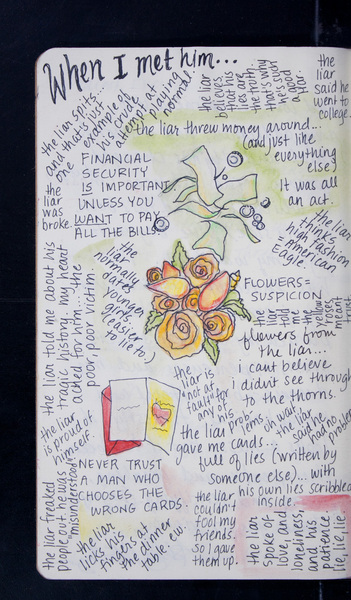 When I met him...
the liar spits...
and that's just
one example of
his crude
attempt at
playing
normal.
the liar
believes
that his
lies are
the truth.
that's why
he's such
a good
liar.
the
liar
said he
went to
college.
the liar threw money around...
(and just like
everything
else)
It was all
an act.
FINANCIAL
SECURITY
IS IMPORTANT
UNLESS YOU
WANT TO PAY
ALL THE BILLS.
the
liar
was
broke.
the liar
thinks
high fashion
= American
Eagle.
the
liar
normally
dates
younger
girls
(easier
to lie to)
the liar told me about his
tragic history. my heart
ached for him... the
poor, poor victim.
FLOWERS=
SUSPICION
the
liar
told
me
the
yellow
roses
meant
trust
flowers from
the liar...
i cant believe
i didn't see through
to the thorns.
the
liar is
not at
fault for
any of
his
problems.
oh wait...
the liar
said he
had no
problems
the liar
gave me cards...
full of lies (written by
someone else)... with
his own lies scribbled
inside.
the liar
is proud of
himself.
NEVER TRUST
A MAN WHO
CHOOSES THE
WRONG CARDS.
the liar freaked
people out. he was
misunderstood.
the liar
licks his
fingers at
the dinner
table. ew.
the liar
couldn't
fool my
friends.
so I gave
them up.
the liar
spoke of
love, and
loneliness,
and his
patience.
lie, lie, lie.